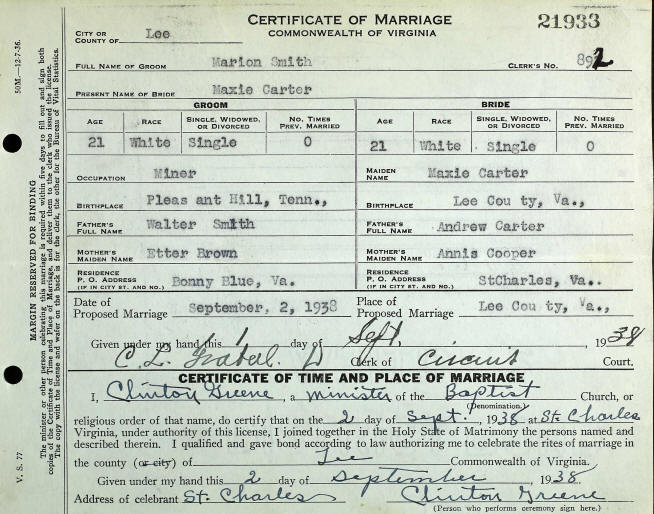 CERTIFICATE OF MARRIAGE 21933
COMMONWEALTH OF VIRGINIA
CITY OR
COUNTY OF Lee
FULL NAME OF GROOM Marion Smith CLERK'S NO. 892
PRESENT NAME OF BRIDE Maxie Carter
GROOM BRIDE
AGE RACE SINGLE, WIDOWED, OR DIVORCED NO. TIMES PREV. MARRIED AGE RACE SINGLE, WIDOWED, OR DIVORCED NO. TIMES PREV. MARRIED
21 White Single 0 21 White Single 0
OCCUPATION Miner MAIDEN NAME Maxie Carter
BIRTHPLACE Pleas ant Hill, Tenn., BIRTHPLACE Lee Cou ty, Va.,
FATHER'S FULL NAME Walter Smith FATHER'S FULL NAME Andrew Carter
MOTHER'S MAIDEN NAME Etter Brown MOTHER'S MAIDEN NAME Annis Cooper
RESIDENCE P. O. ADDRESS (IF IN CITY ST. AND NO.) Bonny Blue, Va. RESIDENCE P. O. ADDRESS (IF IN CITY ST. AND NO.) StCharles, Va..
Date of Proposed Marriage September, 2, 1938 Place of Proposed Marriage Lee Cou ty, Va.,
Given under my hand this 1 day of Sept. , 1938
C. L. Clerk of Circuit Court.
CERTIFICATE OF TIME AND PLACE OF MARRIAGE
I, Clinton Greene , a minister of the Baptist Church, or
(Denomination)
religious order of that name, do certify that on the 2 day of Sept. , 1938 at St. Charles
Virginia, under authority of this license, I joined together in the Holy State of Matrimony the persons named and
described therein. I qualified and gave bond according to law authorizing me to celebrate the rites of marriage in
the county (or city) of Lee Commonwealth of Virginia.
Given under my hand this 2 day of September , 1938.
Address of celebrant St. Charles Clinton Greene
(Person who performs ceremony sign here.)
V. S. 77 50M.—12-7-36.
MARGIN RESERVED FOR BINDING
The minister or other person celebrating this marriage is required within five days to fill out and sign both
copies of the Certificate of Time and Place of Marriage, and deliver them to the clerk who issued the license.
The copy with the license and water on the back is for the clerk, the other for the Bureau of Vital Statistics.